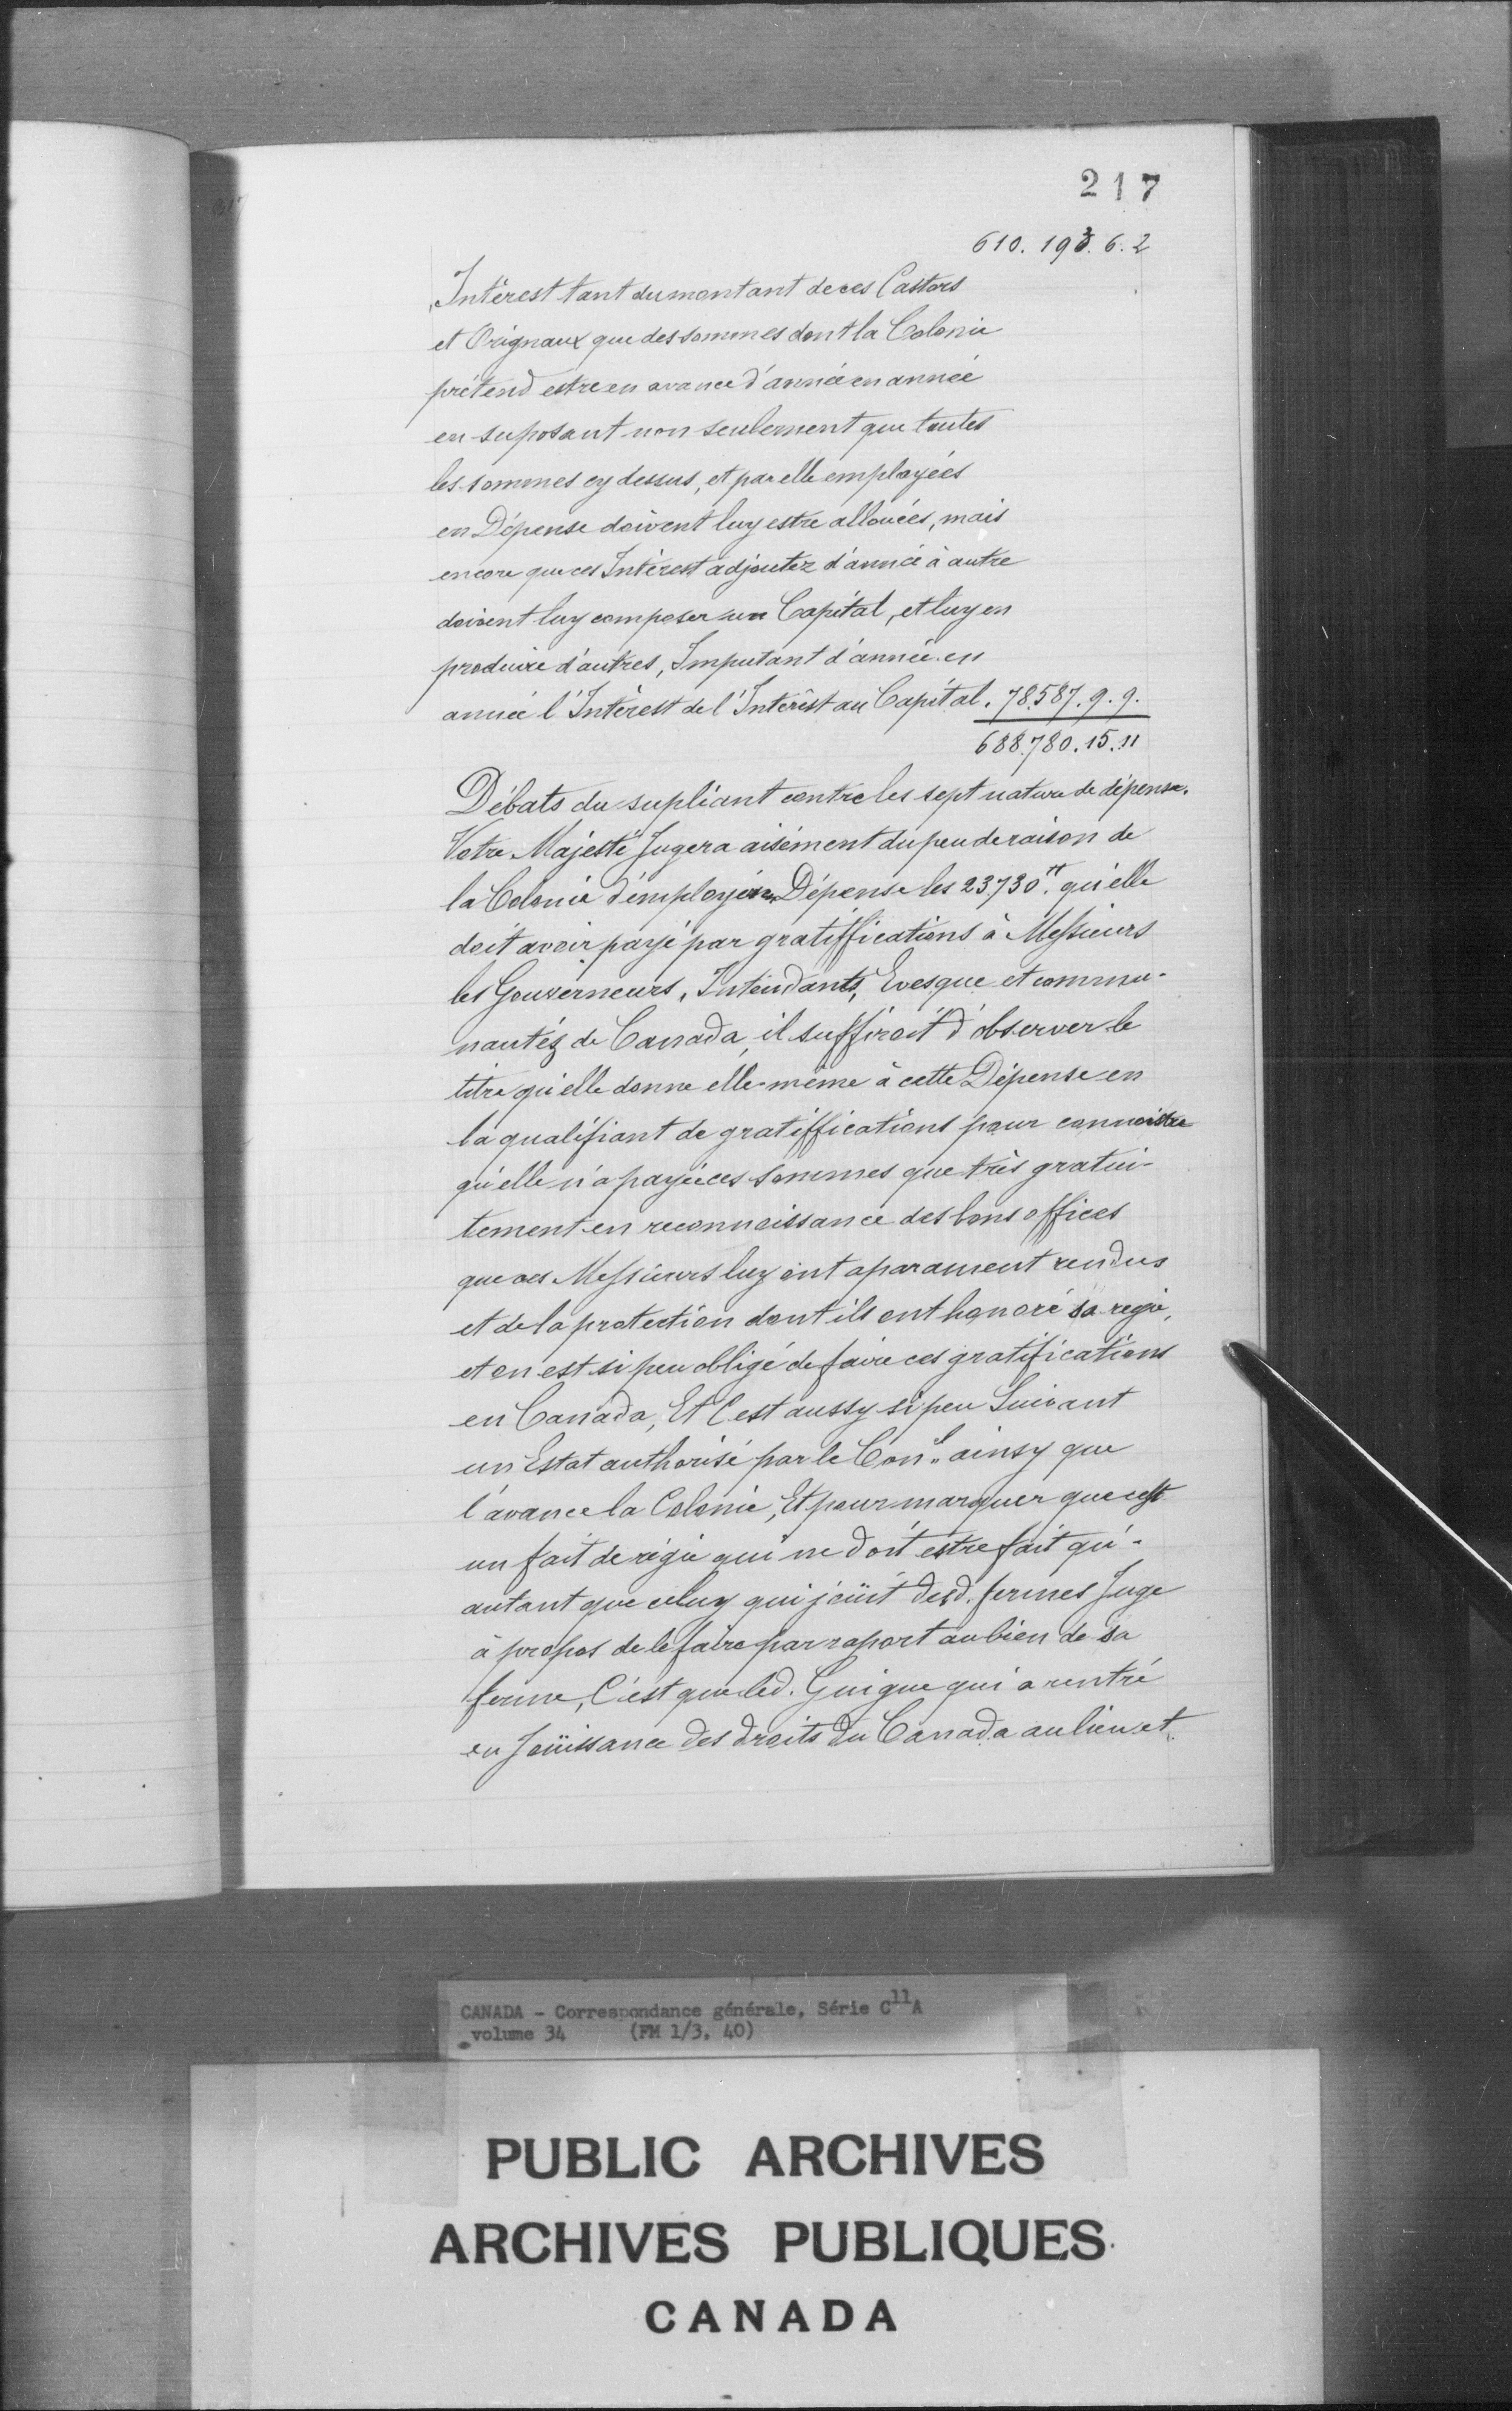 217
610.193.6.2
Intérest tant du montant de ces Castors
et Orignaux que des sommes dont la Colonie
prétend estre en avance d'année en année
en suposant non seulement que toutes
les sommes cy dessus, et par elle employées
en Dépense doivent luy estre allouées, mais
encore que ces Intérest adjoutez d'année à autre
doivent luy composer un Capital, et luy en
produire d'autres, Imputant d'année en
année l'Intérest de l'Intérêst au Capital. 78.587.9.9.
688.780.15.11
Débats du supliant contre les sept nature de dépense.
Votre Majesté Jugera aisément du peu de raison de
la Colonie d'employer en Dépense les 23.730tt. qu'elle
doit avoir payé par gratiffications à Messieurs
les Gouverneurs, Intendants, Evesque et commu-
nautéz de Canada, il suffiroit d'observer le
titre qu'elle donne elle-même à cette Dépense en
la qualifiant de gratiffications pour connoistre
qu'elle n'a payé ces sommes que très gratui-
tement en reconnoissance des bons offices
que ces Messieurs luy ont aparament rendus
et de la protection dont ils ont honoré sa regie,
et on est si peu obligé de faire ces gratifications
en Canada, Et C'est aussy si peu Suivant
un Estat authorisé par le Con.el ainsy que
l'avance la Colonie, Et pour marquer que cest
un fait de régie qui ne doit estre fait qu'-
autant que celuy qui joüit desd. fermes Juge
à propos de le faire par raport au bien de sa
ferme, C'est que led. Guigue qui a rentré
en Joüissance des droits du Canada au lieu et
CANADA - Correspondance générale, Série C11A
volume 34 (FM 1/3, 40)
PUBLIC ARCHIVES
ARCHIVES PUBLIQUES
CANADA